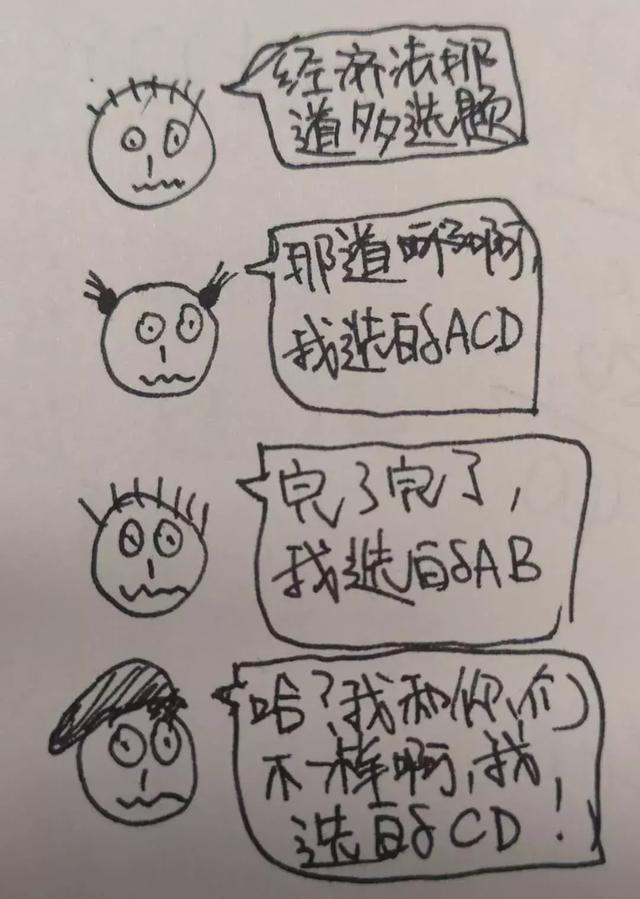 经济法那
道多选题
那道啊啊,
我选的ACD
完了完了,
我选的AB
哈?我和你们
不一样啊,我
选的CD!